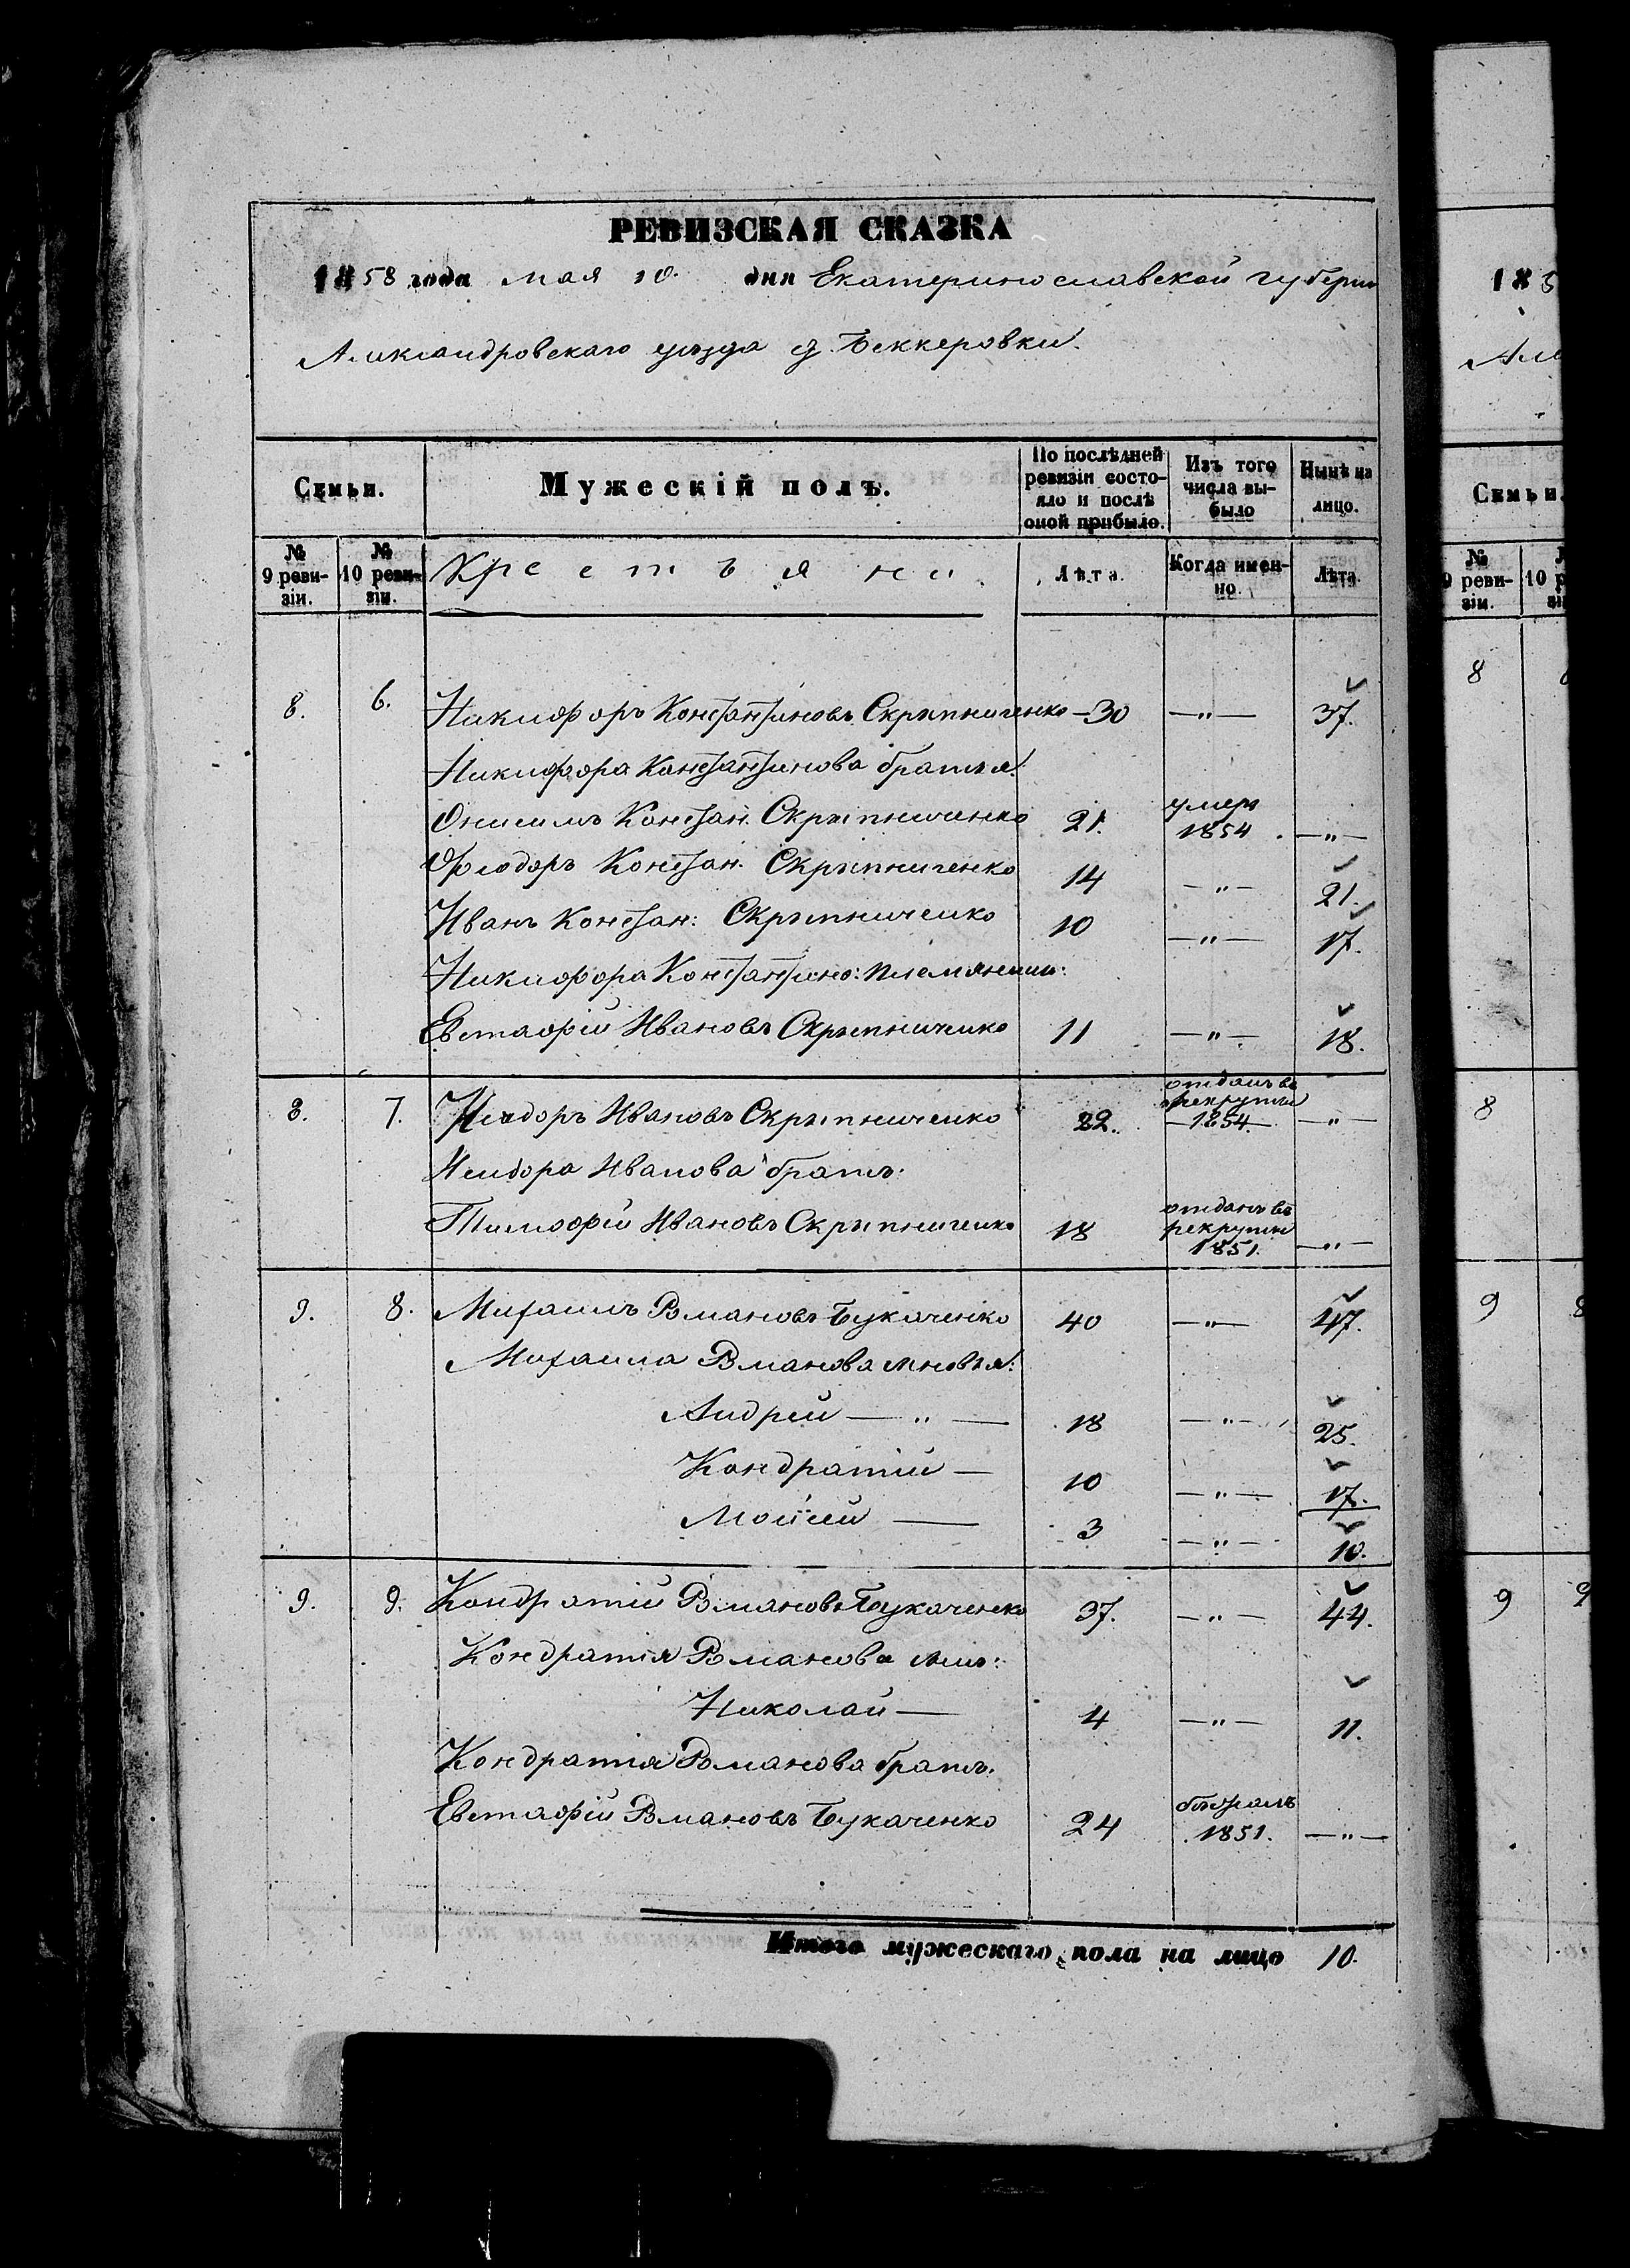 РЕВИЗСКАЯ СКАЗКА
1858 года мая 10. дня Екатеринославской губерни
Александровскаго уѣзда д. Беккеровки.
Семьи.
Мужескій полъ.
По послѣдней ревизіи состо-
яло и послѣ
оной прибыло.
Изъ того
числа вы-
было
Нынѣ на
лицо.
№ 9 реви-
зіи.
№ 10 реви-
зіи.
Крестьяни.
Лѣта.
Когда имен-
но.
Лѣта.
8. 6. Никифоръ Константиновъ Скрыпниченко – 30 —"— 37.
Никифора Константинова братья:
Онисимъ Констан. Скрыпниченко 21. умеръ 1854. —"—
Фіодоръ Констан. Скрыпниченко 14 —"— 21.
Иванъ Констан: Скрыпниченко 10 —"— 17.
Никифора Константино: племянник:
Евстафій Ивановъ Скрыпниченко 11 —"— 18.
8. 7. Исидоръ Ивановъ Скрыпниченко 22. отданъ въ рекруты 1854. —"—
Исидора Иванова братъ:
Тимофій Ивановъ Скрыпниченко 18 отданъ въ рекруты 1851. —"—
9. 8. Михаилъ Романовъ Букаченко 40 —"— 47.
Михаила Романова сновья:
Андрей —"— 18 —"— 25.
Кондратій — 10 —"— 17.
Мойсей — 3 —"— 10.
9. 9. Кондратій Романовъ Букаченко 37. —"— 44.
Кондратія Романова сынъ:
Николай — 4 —"— 11.
Кондратія Романова братъ:
Евстафій Романовъ Букаченко 24 бѣжалъ 1851. —"—
Итого мужескаго пола на лицо 10.
183
Але
Семьи.
№
9 реви-
зіи.
10 р
зі
8
8
9 8
9 9